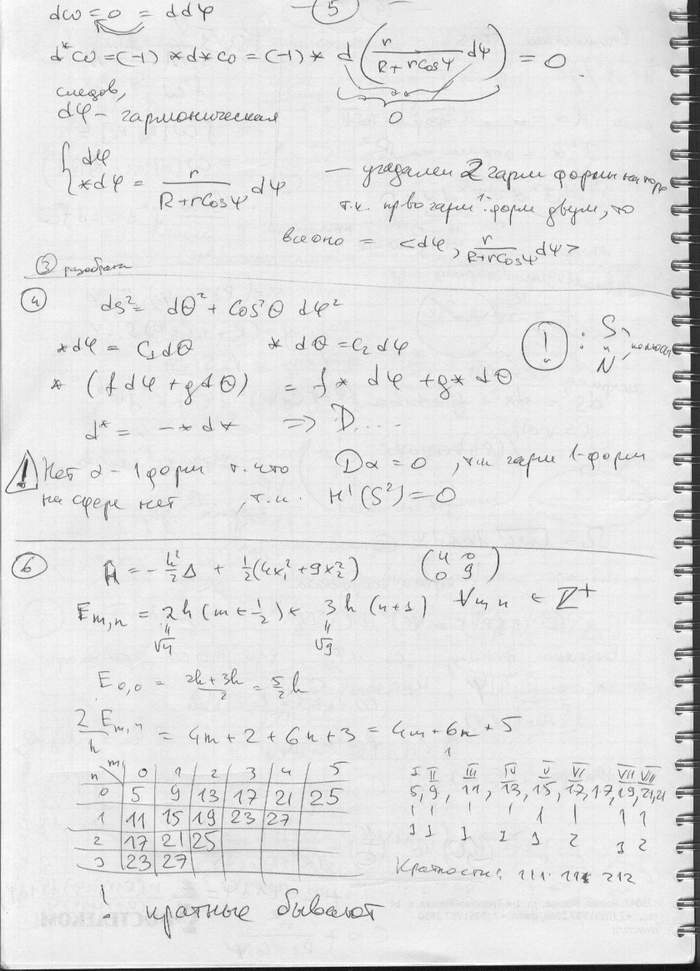 dω = 0 = ddφ
5
d*ω = (-1) * d * ω = (-1) * d ( r / (R + r cos ψ) dψ ) = 0.
следов,
dφ – гармоническая
0
{ dφ
*dφ = r / (R + r cos ψ) dψ
— угадали 2 гарм формы на торе
т.к. пр-во гарм 1-форм двум, то
все оно = <dφ, r / (R + r cos ψ) dψ>
③ разобрана
④ ds² = dθ² + cos²θ dφ²
*dφ = C₁dθ * dθ = C₂dφ
! : S, N полюса
* (f dφ + g dθ) = f * dφ + g * dθ
d* = - * d * ⟹ D....
! Нет α - 1 форм т.что Dα = 0, т.к гарм 1-форм
на сфере нет, т.к. H¹(S²) = 0
⑥ Ĥ = - h²/2 Δ + ½(4x₁² + 9x₂²) (4 0 0 9)
E m,n = 2h (m + ½) + 3h (n + ) ∀ m n ∈ Z⁺
√4 √9
E 0,0 = (2h + 3h)/2 = 5/2 h
2 E m,n / h = 4m + 2 + 6n + 3 = 4m + 6n + 5
n m 0 1 2 3 4 5
0 5 9 13 17 21 25
1 11 15 19 23 27
2 17 21 25
3 23 27
I II III IV V VI VII VIII
5, 9, 11, 13, 15, 17, 17, 19, 21, 21
1 1 1 1 1 2 1 2
Кратности: 111 11 212
! кратные бывают